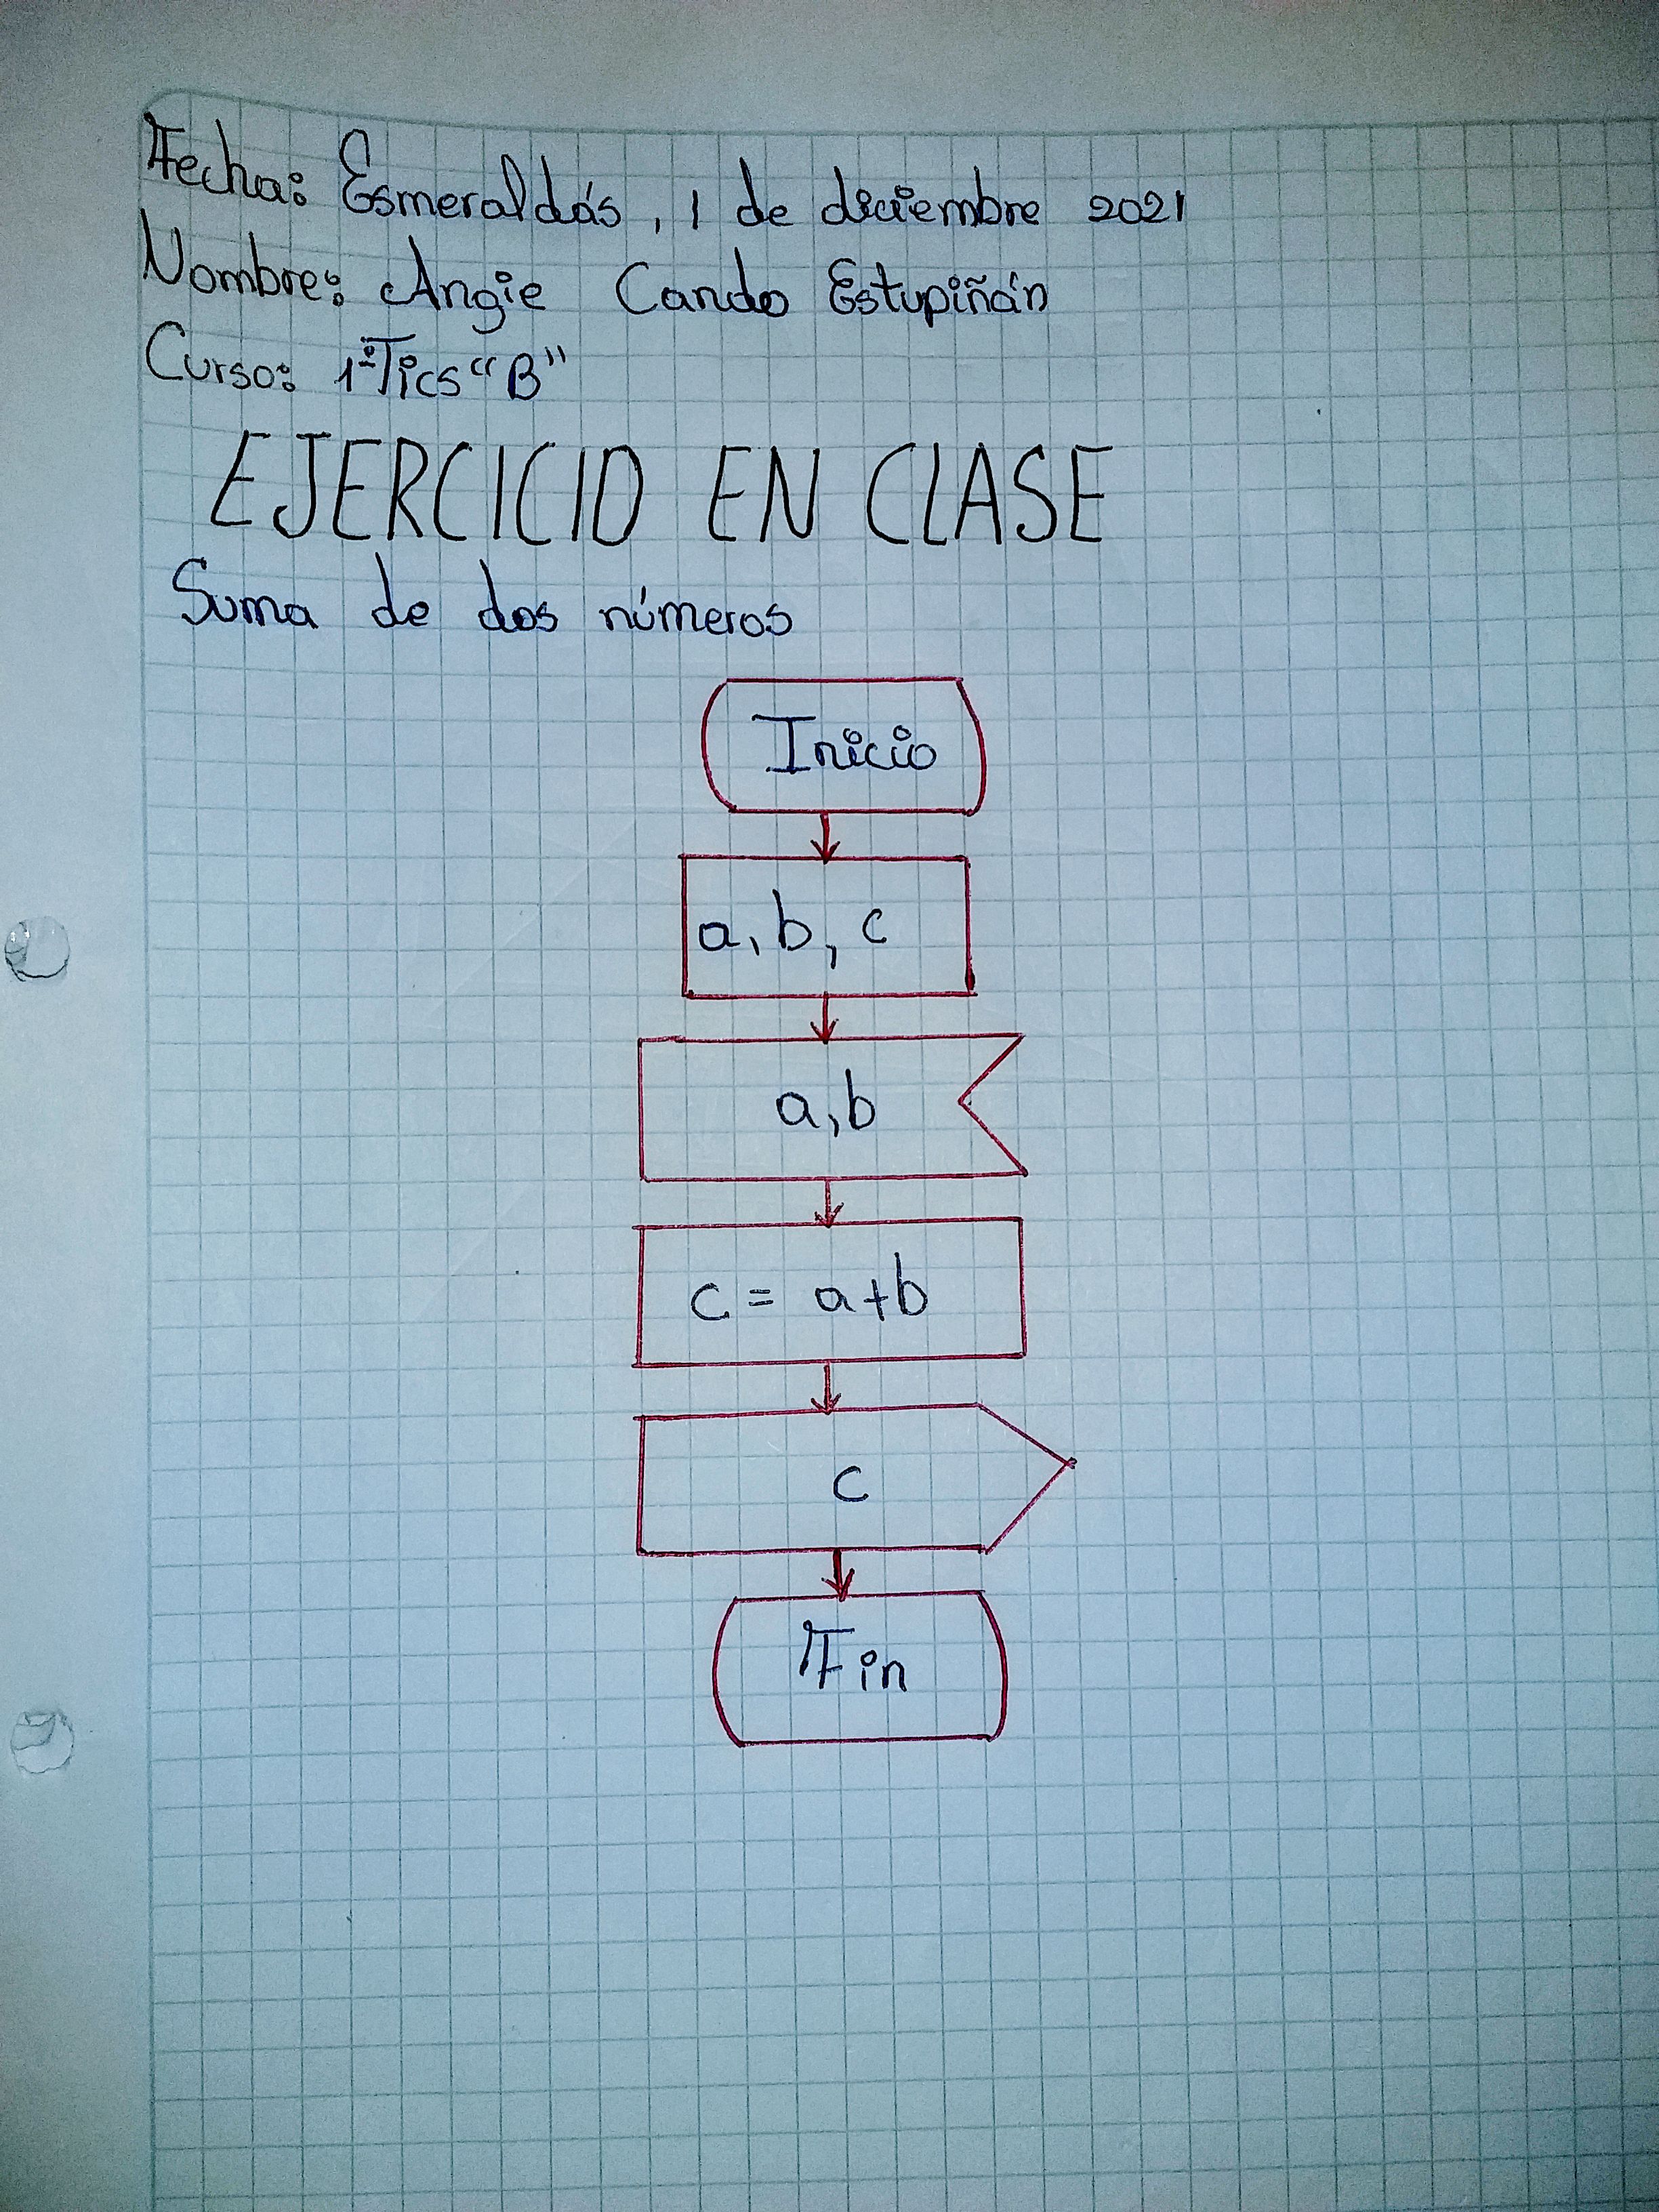 Fecha: Esmeraldás, 1 de diciembre 2021
Nombre: Angie Cando Estupiñán
Curso: 1º Tics "B"
EJERCICIO EN CLASE
Suma de dos números
Inicio
a, b, c
a, b
c = a+b
c
Fin